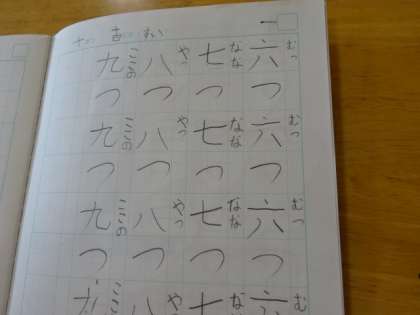 一
六つ六つ六つ六
むっ むっ むっ む
七つ七つ七つ七
なな なな なな なな
八つ八つ八つ八
やっ やっ やっ やっ
九つ九つ九つ九
ここの ここの ここの ここ